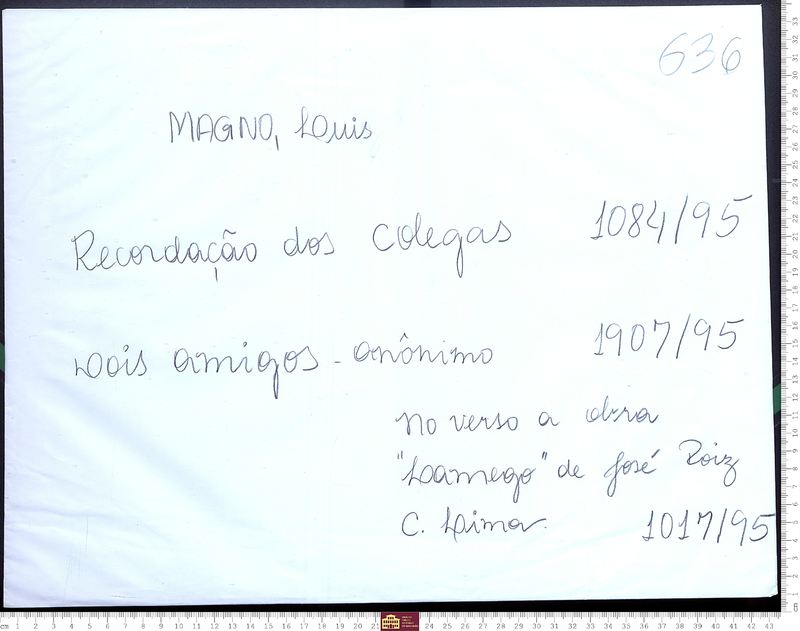 636
MAGNO, Louis
Recordação dos colegas 1084/95
Dois amigos - anônimo 1907/95
No verso a obra
"Lamego" de José Roiz
C. Lima. 1017/95